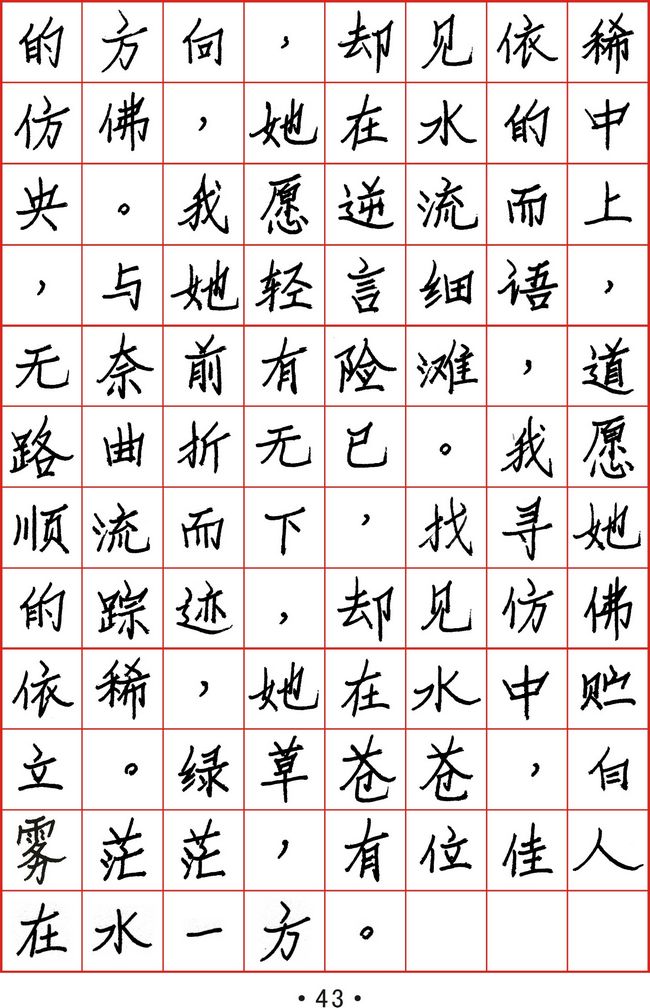 的方向，却见依稀
仿佛，她在水的中
央。我愿逆流而上
，与她轻言细语，
无奈前有险滩，道
路曲折无已。我愿
顺流而下，找寻她
的踪迹，却见仿佛
依稀，她在水中贮
立。绿草苍苍，白
雾茫茫，有位佳人
在水一方。
·43·